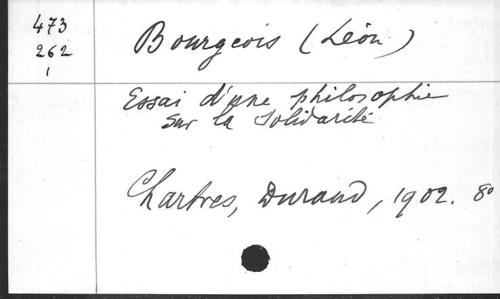 473
262
1
Bourgeois (Léon)
Essai d'une philosophie
sur la Solidarité
Chartres, Durand, 1902. 8°